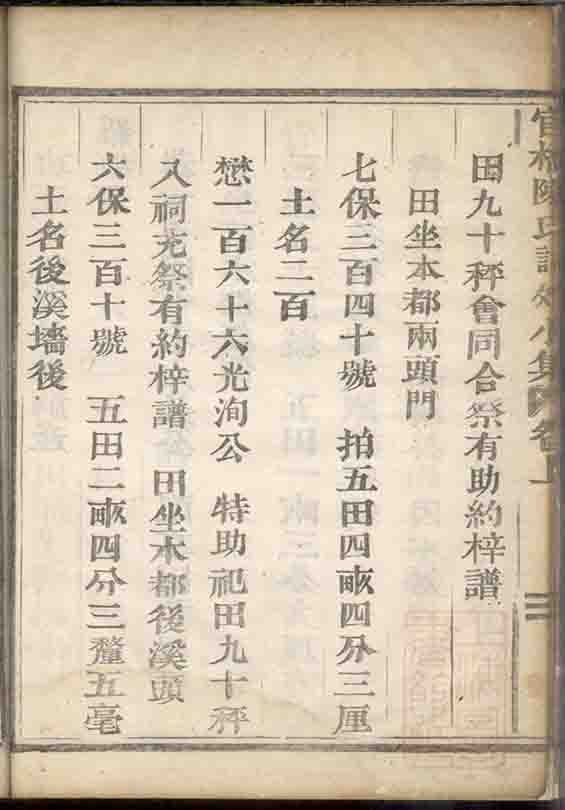 田九十秤會同合祭有助約梓譜
田坐本都兩頭門
七保三百四十號 拍五田四畝四分三厘
土名二百
懋一百六十六光洵公 特助祀田九十秤
入祠充祭有約梓譜 田坐本都後溪頭
六保三百十號 五田二畝四分三釐五毫
土名後溪墻後